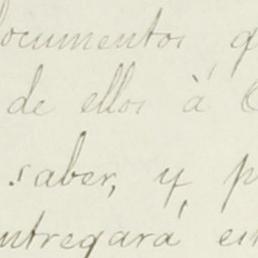 documentos q
de ellos à
saber, y, p
entregará en